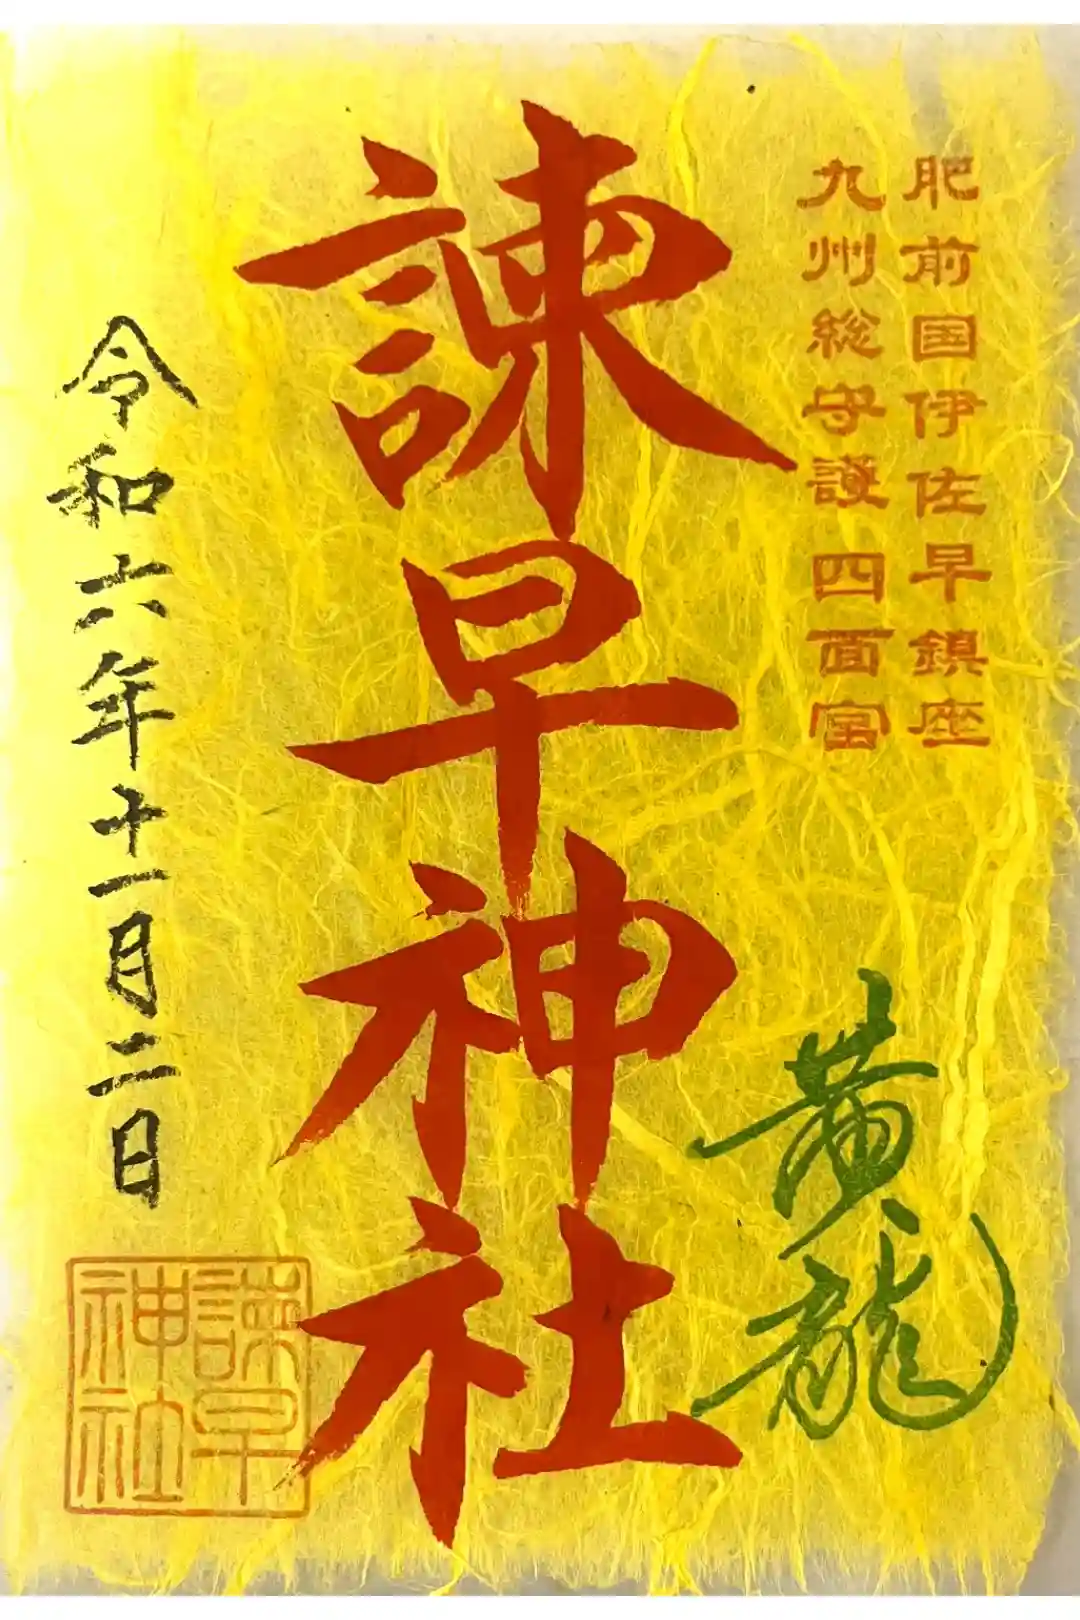 肥前国伊佐早鎮座
九州総守護四面宮
諫早神社
黄龍
令和六年十一月二日
諫早神社